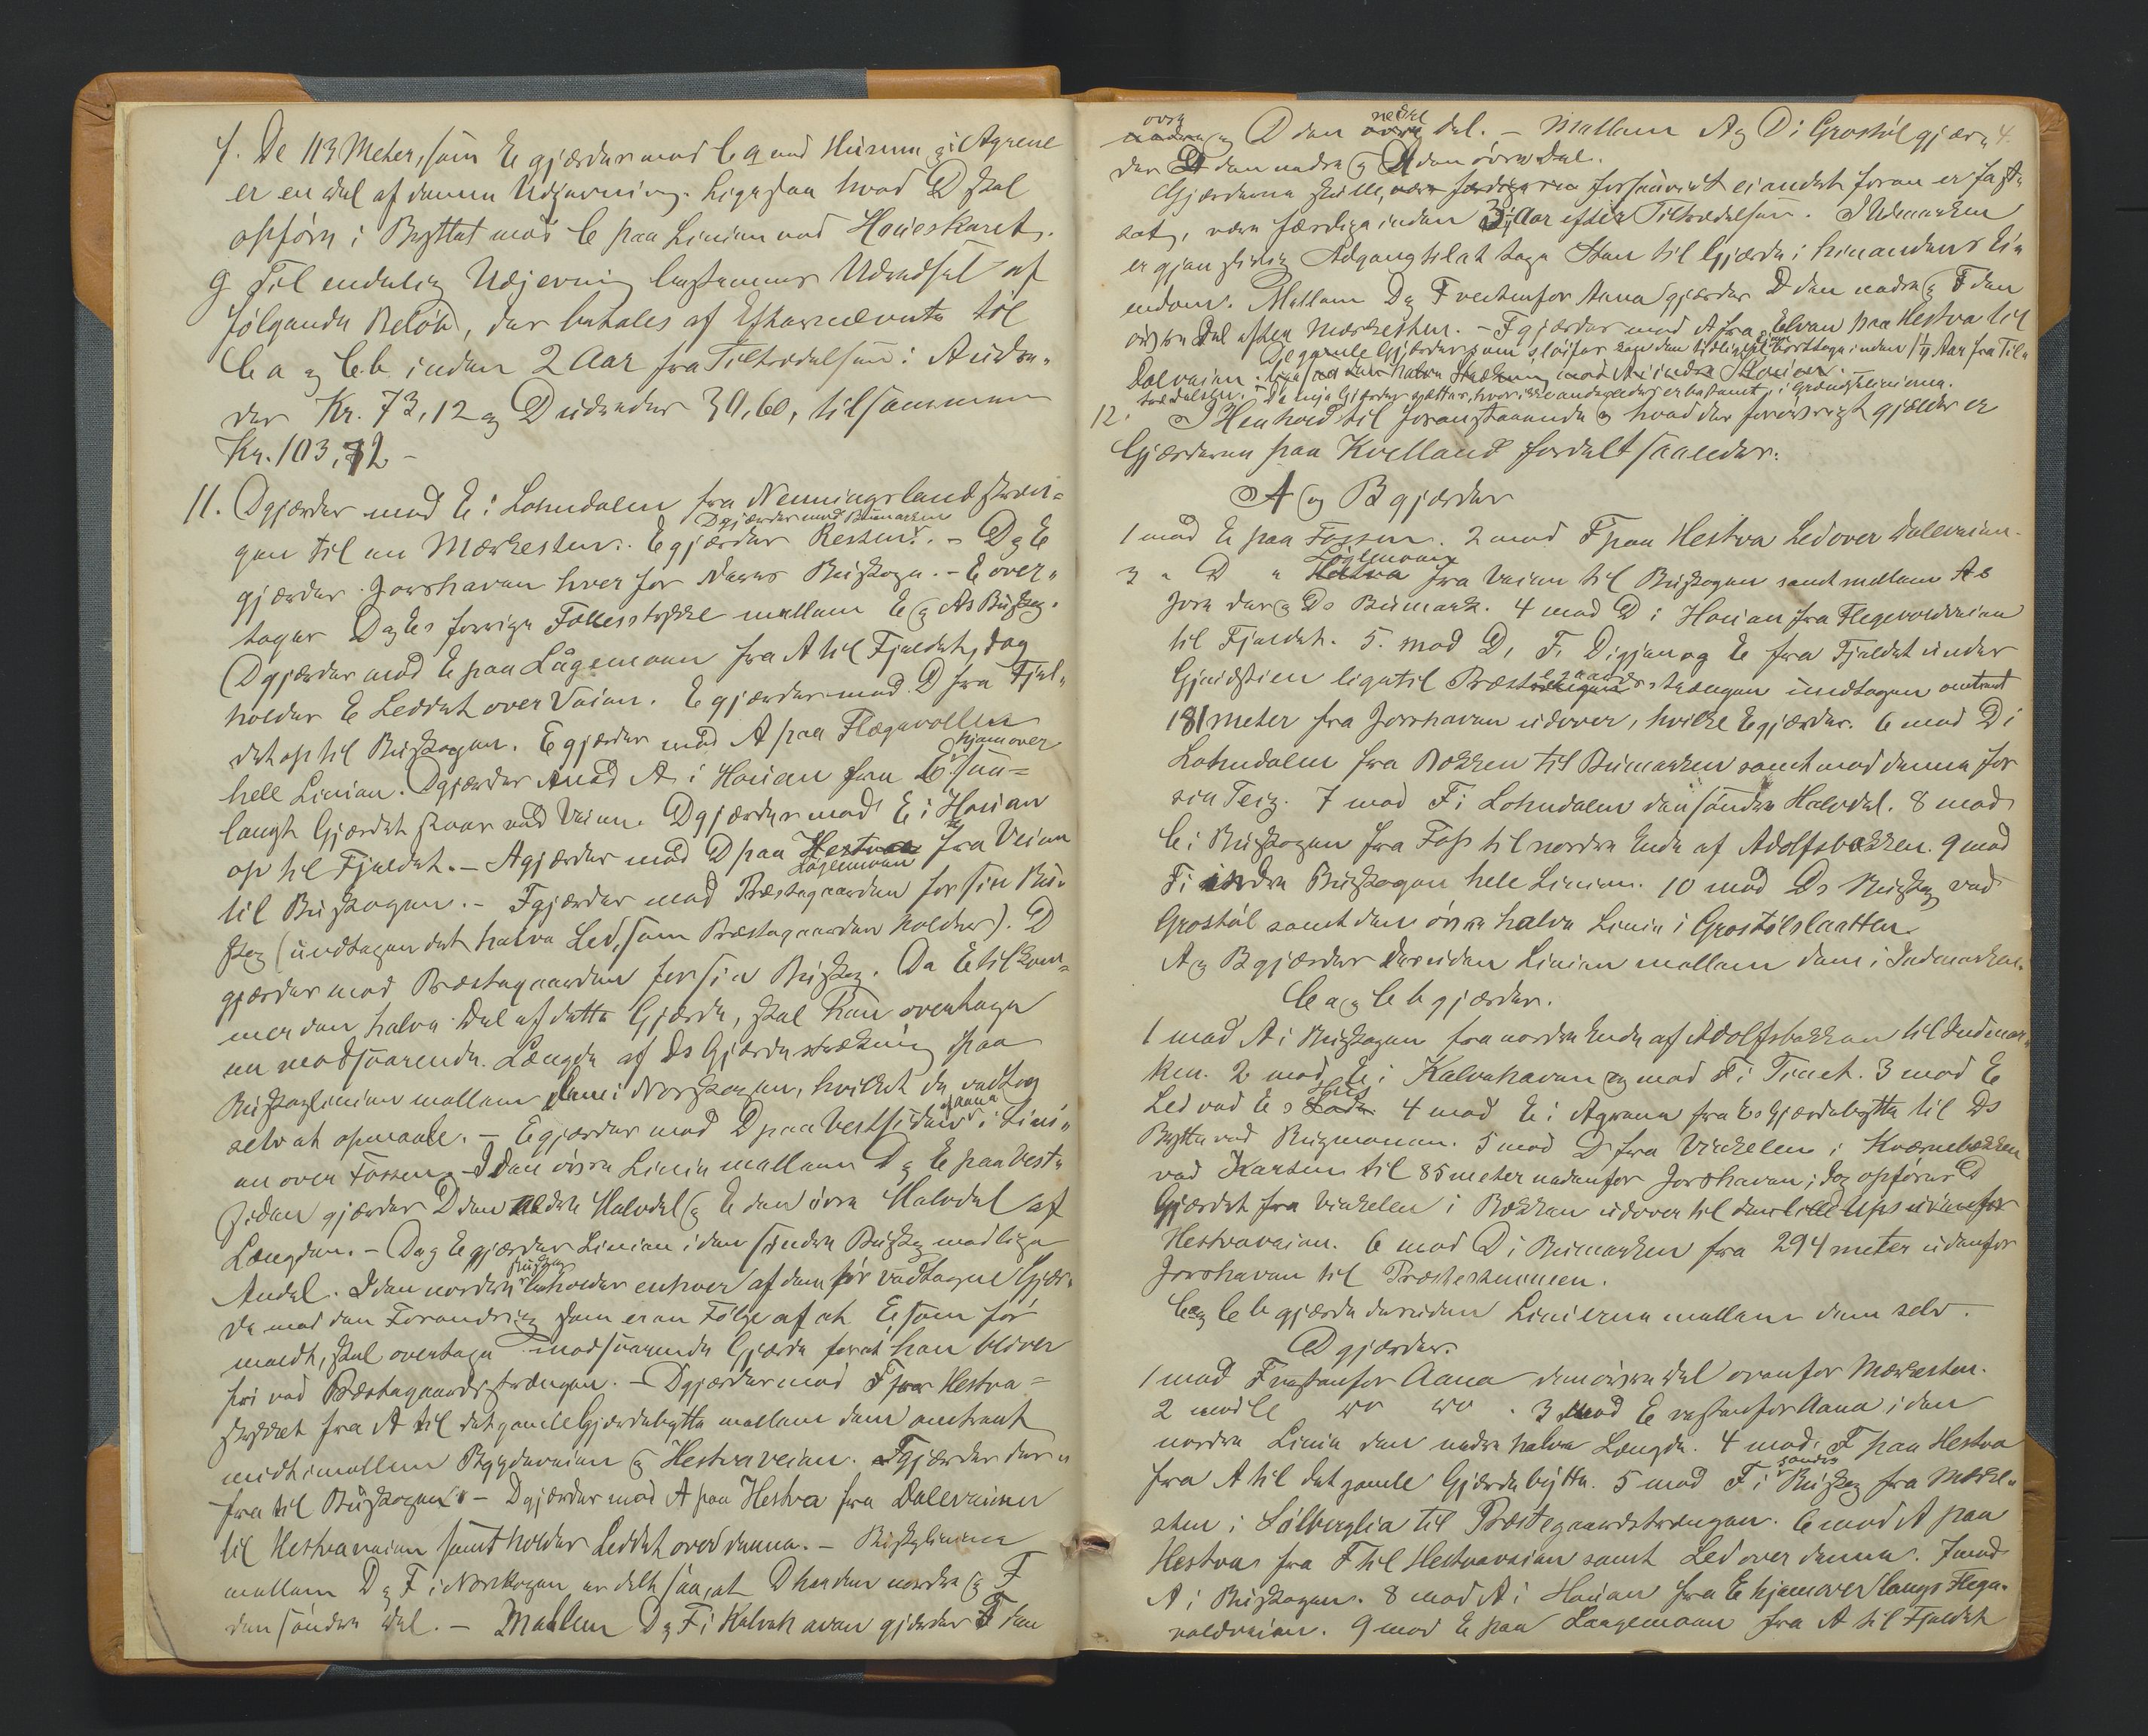 f. De 113 Meter, som E gjærder mod C a ved Husene i Agrene
er en Del af denne Udjævning. Ligesaa hvad D skal
opføre i Byttet mod C paa Linien ved Høieskaret.
g Til endelig Udjevning bestemmes Udredsel af
følgende Beløb, der betales af Efternævnte til
C a og C b inden 2 Aar fra Tiltrædelsen: A udre-
der Kr. 73,12 og D udreder 30,60, tilsammen
Kr. 103,72 -
11. D gjærder mod E i Lohndalen fra Nenningsland
gen til en Mærkesten. D gjærder mod Bumarken E gjærder Resten. - D og E
gjærder Jorshaven hver for deres Buskoge. - E over-
tager D og Es forrige Fællesstykke mellem E og As Buskog.
D gjærder mod E paa Lågemoen fra A til Fjeldet, dog
holder E Leddet over Veien. E gjærder mod D fra Fjel-
det op til Buskogen. E gjærder mod A paa Flægevollen
hele Linien. D gjærder mod A i Houan fra E hjemover saa-
langt Gjærdet staar ved Veien. D gjærder mod E i Houan
op til Fjeldet. - A gjærder mod D paa Hestvaa Lågemoen fra Veien
til Buskogen. - F gjærder mod Præstegaarden for sin Bu-
skog (undtagen det halve Led, som Præstegaarden holder). D
gjærder mod Præstegaarden for sin Buskog. Da E tilkom-
mer den halve Del af dette Gjærde, skal han overtage
en modsvarende Længde af Ds Gjærdestrækning paa
Buskoglinien mellem dem i Norskogen, hvilket de vedtog
selv at opmaale. - E gjærder mod D paa Vestsiden af Aana i Lini-
en over Fossen. I den øvre Linie mellem D og E paa Vest-
siden gjærder D den nedre Halvdel og E den øvre Halvdel af
Længden. - D og E gjærder Linien i den søndre Buskog med lige
Andel. I den nordre Buskog beholder enhver af dem før vedtagne Gjær-
de med den Forandring som er en Følge af at E, som før
meldt, skal overtage modsvarende Gjærde forat han bliver
fri ved Præstegaardsstrængen. - D gjærder mod F paa Hestva=
stykket fra A til det gamle Gjærdebytte mellem dem omtrent
midt imellem Bygdeveien og Hestvaveien. F gjærder der-
fra til Buskogen. - D gjærder mod A paa Hestva fra Daleveien
til Hestvaveien samt holder Leddet over denne. - Buskoglinien
mellem D og F i Norskogen er delt saa, at D har den nordre og F
den søndre Del. - Mellem D og F i Kalvehaven gjærder F den
øvre nedre og D den nedre øvre Del. - Mellem A og D i Grostøl gjær- 4.
der D den nedre og A den øvre Del.
Gjærderne skulle, være færdige forsaavidt ei andet foran er fast-
sat, være færdige inden 3 Aar efter Tiltrædelsen. I Udmarken
er gjensidig Adgang til at tage Sten til Gjærde i hinandens Ei-
endom. Mellem D og F vestenfor Aana gjærder D den nedre og F den
øvre Del efter Mærkesten. - F gjærder mod A fra Elven paa Hestva til
De gamle Gjærder som sløifes kan den tidligere Eier borttage inden 1 1/4 Aar fra Til-
Daleveien.
trædelsen. - De nye Gjærder sættes, hvor ikke anderledes er bestemt, i Grændselinierne.
12. I Henhold til foranstaaende og hvad der forøvrigt gjælder er
Gjærderne paa Kvelland fordelt saaledes:
A og B gjærder
1 mod E paa Fossen. 2 mod F paa Hestva Led over Daleveien.
3 " D " Hestva Lågemoen fra Veien til Buskogen samt mellem As
Jord der og Ds Bumark. 4 mod D i Houan fra Flegevoldveien
til Fjeldet. 5. mod D, F, D igjen og E fra Fjeldet under
Gjeidstien lige til Præstegaardsstrængen undtagen omtrent
181 meter fra Jorshaven udover, hvilke E gjærder. 6 mod D i
Lohndalen fra Bækken til Bumarken samt mod denne for
sin Teig. 7 mod F i Lohndalen den søndre Halvdel. 8 mod
C i Buskogen fra Foss til nordre Ende af Adolfsbækken. 9 mod
F i indre Buskogen hele Linien. 10 mod Ds Buskog ved
Grostøl samt den øvre halve Linie i Grostølslaatten.
A og B gjærder desuden Linien mellem dem i Indmarken.
C a og C b gjærder.
1 mod A i Buskogen fra nordre Ende af Adolfsbakken til Indmar-
ken. 2 mod E i Kalvehaven og mod F i Tunet. 3 mod E
Led ved E s Lade Hus 4 mod E i Agrene fra Es Gjærdebytte til Ds
Bytte ved Rugmoenen. 5 mod D fra Vinkelen i Kværnebækken
ved Karsen til 85 meter nedenfor Jorshaven; dog opfører D
Gjærdet fra Vinkelen i Bækken udover til den lille Ups udenfor
Hestvaveien. 6 mod D i Bumarken fra 294 meter udenfor
Jorshaven til Præstestemmen.
C a og C b gjærde desuden Linierne mellem dem selv.
D gjærder.
1 mod F vestenfor Aana den øvre Del ovenfor Mærkesten.
2 mod C do do. 3 mod E vestenfor Aana i den
nordre Linie den nedre halve Længde. 4 mod F paa Hestva
fra A til det gamle Gjærdebytte. 5 mod F i søndre Buskog fra Mærke-
sten i Sølberglia til Præstegaardstrængen. 6 mod A paa
Hestva fra F til Hestvaveien samt Led over denne. 7 mod
A i Buskogen. 8 mod A i Houan fra E hjemover langs Flege-
voldveien. 9 mod E paa Laagemoen fra A til Fjeldet